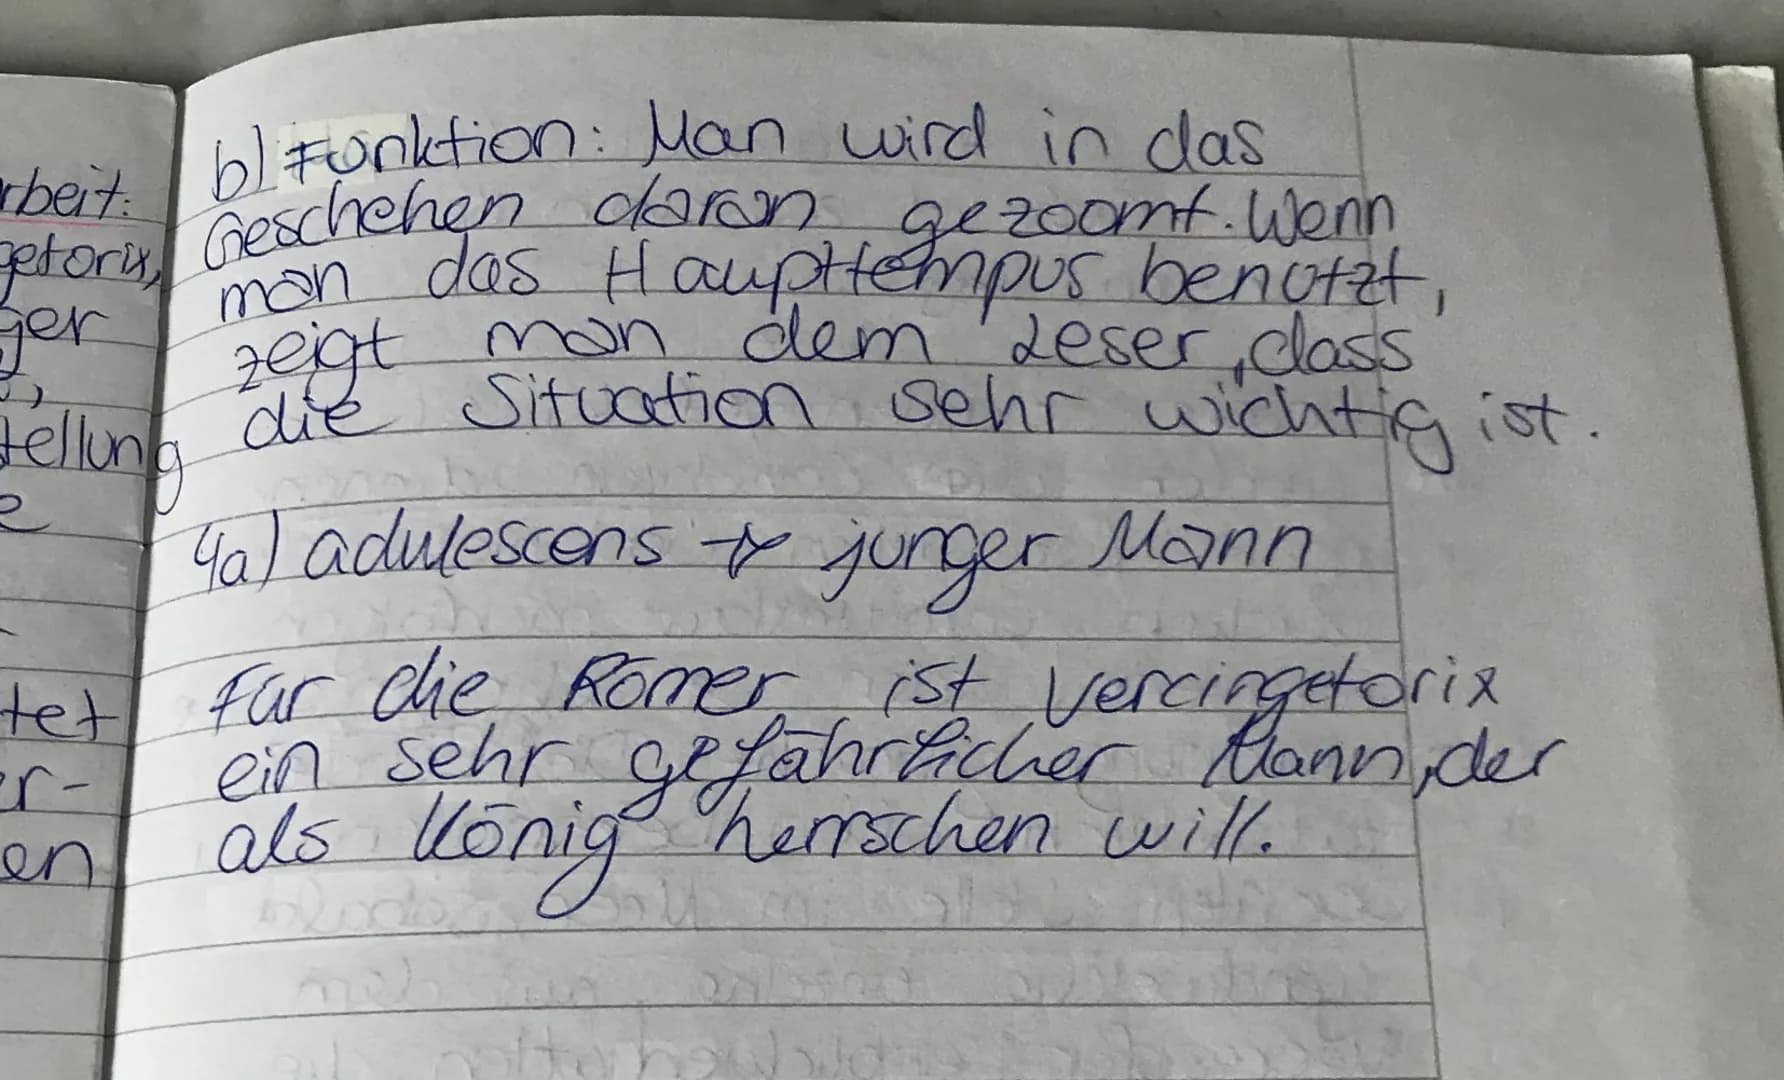 rbeit:
getorix,
ger
tellung
e
tet
er-
en
b) Funktion: Man wird in das
Geschehen daran gezoomt. Wenn
man das Haupttempus benutzt,
zeigt man dem Leser, dass
die Situation sehr wichtig ist.
4a) adulescens → junger Mann
Für die Römer ist Vercingetorix
ein sehr gefährlicher Mann, der
als König herrschen will.